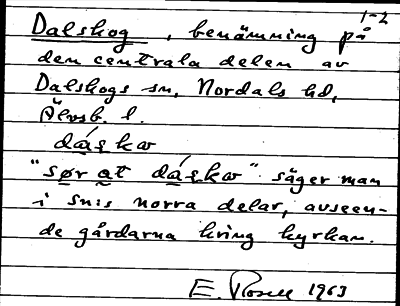 1-2
Dalskog, benämning på
den centrala delen av
Dalskogs sn, Nordals hd,
Älvsb. l.
dáskω
"sør at dáskω" säger man
i sn:s norra delar, avseen-
de gårdarna kring kyrkan.
E. Rosell 1963